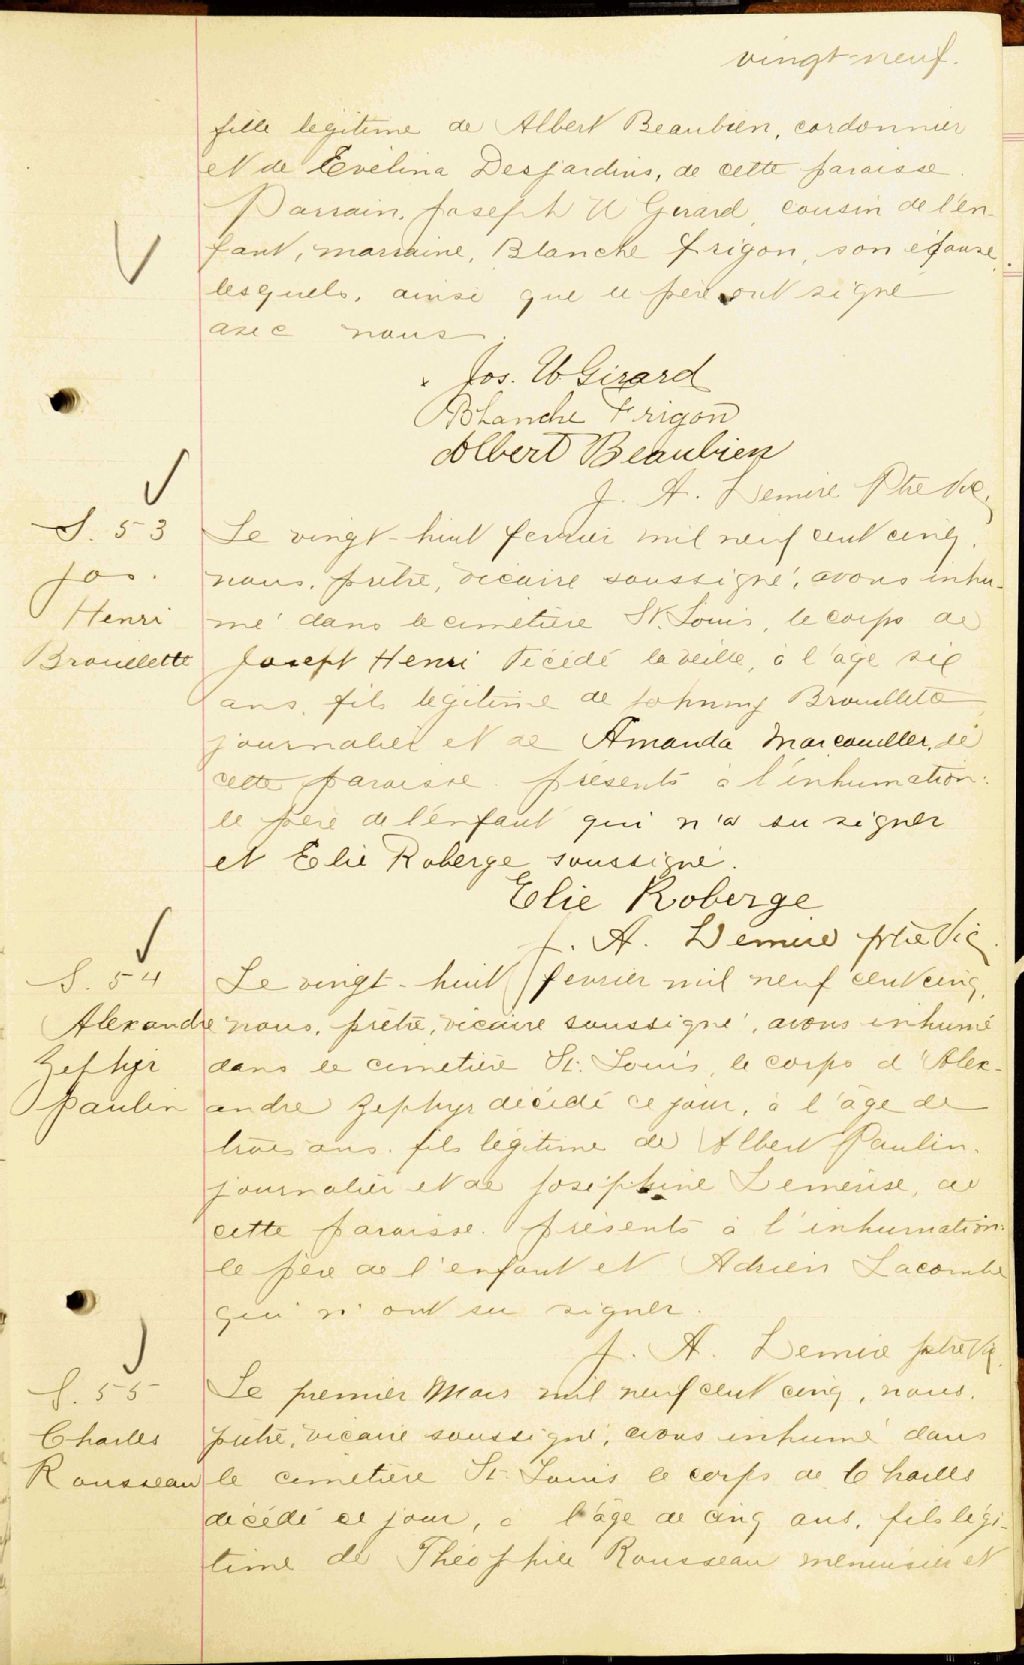 vingt-neuf.
fille legitime de Albert Beaubien, cordonnier
et de Evélina Desjardins, de cette paroisse.
Parrain, Joseph U Girard, cousin de l'en-
fant, marraine, Blanche Frigon, son épouse,
lesquels, ainsi que le père ont signé
avec nous.
Jos. U Girard
Blanche Frigon
Albert Beaubien
J. A. Lemire Ptre Vic.
S. 53
Jos.
Henri
Brouillette
Le vingt-huit fevrier mil neuf cent cinq,
nous, prêtre, vicaire soussigné, avons inhu-
mé dans le cimetière St. Louis, le corps de
Joseph Henri décédé la veille, à l'âge six
ans, fils légitime de Johnny Brouillette
journalier et de Amanda Marcouiller, de
cette paroisse présents à l'inhumation:
le père de l'enfant qui n'a su signer
et Elie Roberge soussigné.
Elie Roberge
J. A. Lemire ptre Vic.
S. 54
Alexandre
Zephyr
Paulin
Le vingt-huit fevrier mil neuf cent cinq,
nous, prêtre, vicaire soussigné, avons inhumé
dans le cimetière St. Louis, le corps d'Alex-
andre Zephyr décédé ce jour, à l'âge de
trois ans, fils légitime de Albert Paulin,
journalier et de Joséphine Lemerise, de
cette paroisse. présents à l'inhumation:
le père de l'enfant et Adrien Lacombe
qui n'ont su signer.
J. A. Lemire ptre Vic.
S. 55
Charles
Rousseau
Le premier Mars mil neuf cent cinq, nous,
prêtre, vicaire soussigné, avons inhumé dans
le cimetière St. Louis le corps de Charles
décédé ce jour, à l'âge de cinq ans, fils légi-
time de Théophile Rousseau menuisier et